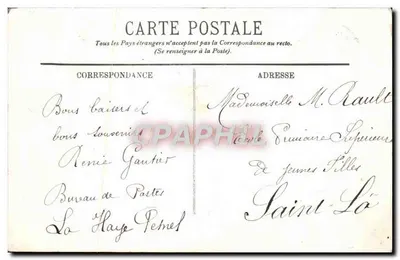 CARTE POSTALE
Tous les Pays étrangers n'acceptent pas la Correspondance au recto.
(Se renseigner à la Poste).
CORRESPONDANCE
Bons baisers et
bons souvenirs
Renée Gautier
Bureau de Postes
La Haye Pesnel
ADRESSE
Mademoiselle M. Rault
Ecole Primaire Supérieure
de jeunes filles
Saint-Lô
CPAPHIL